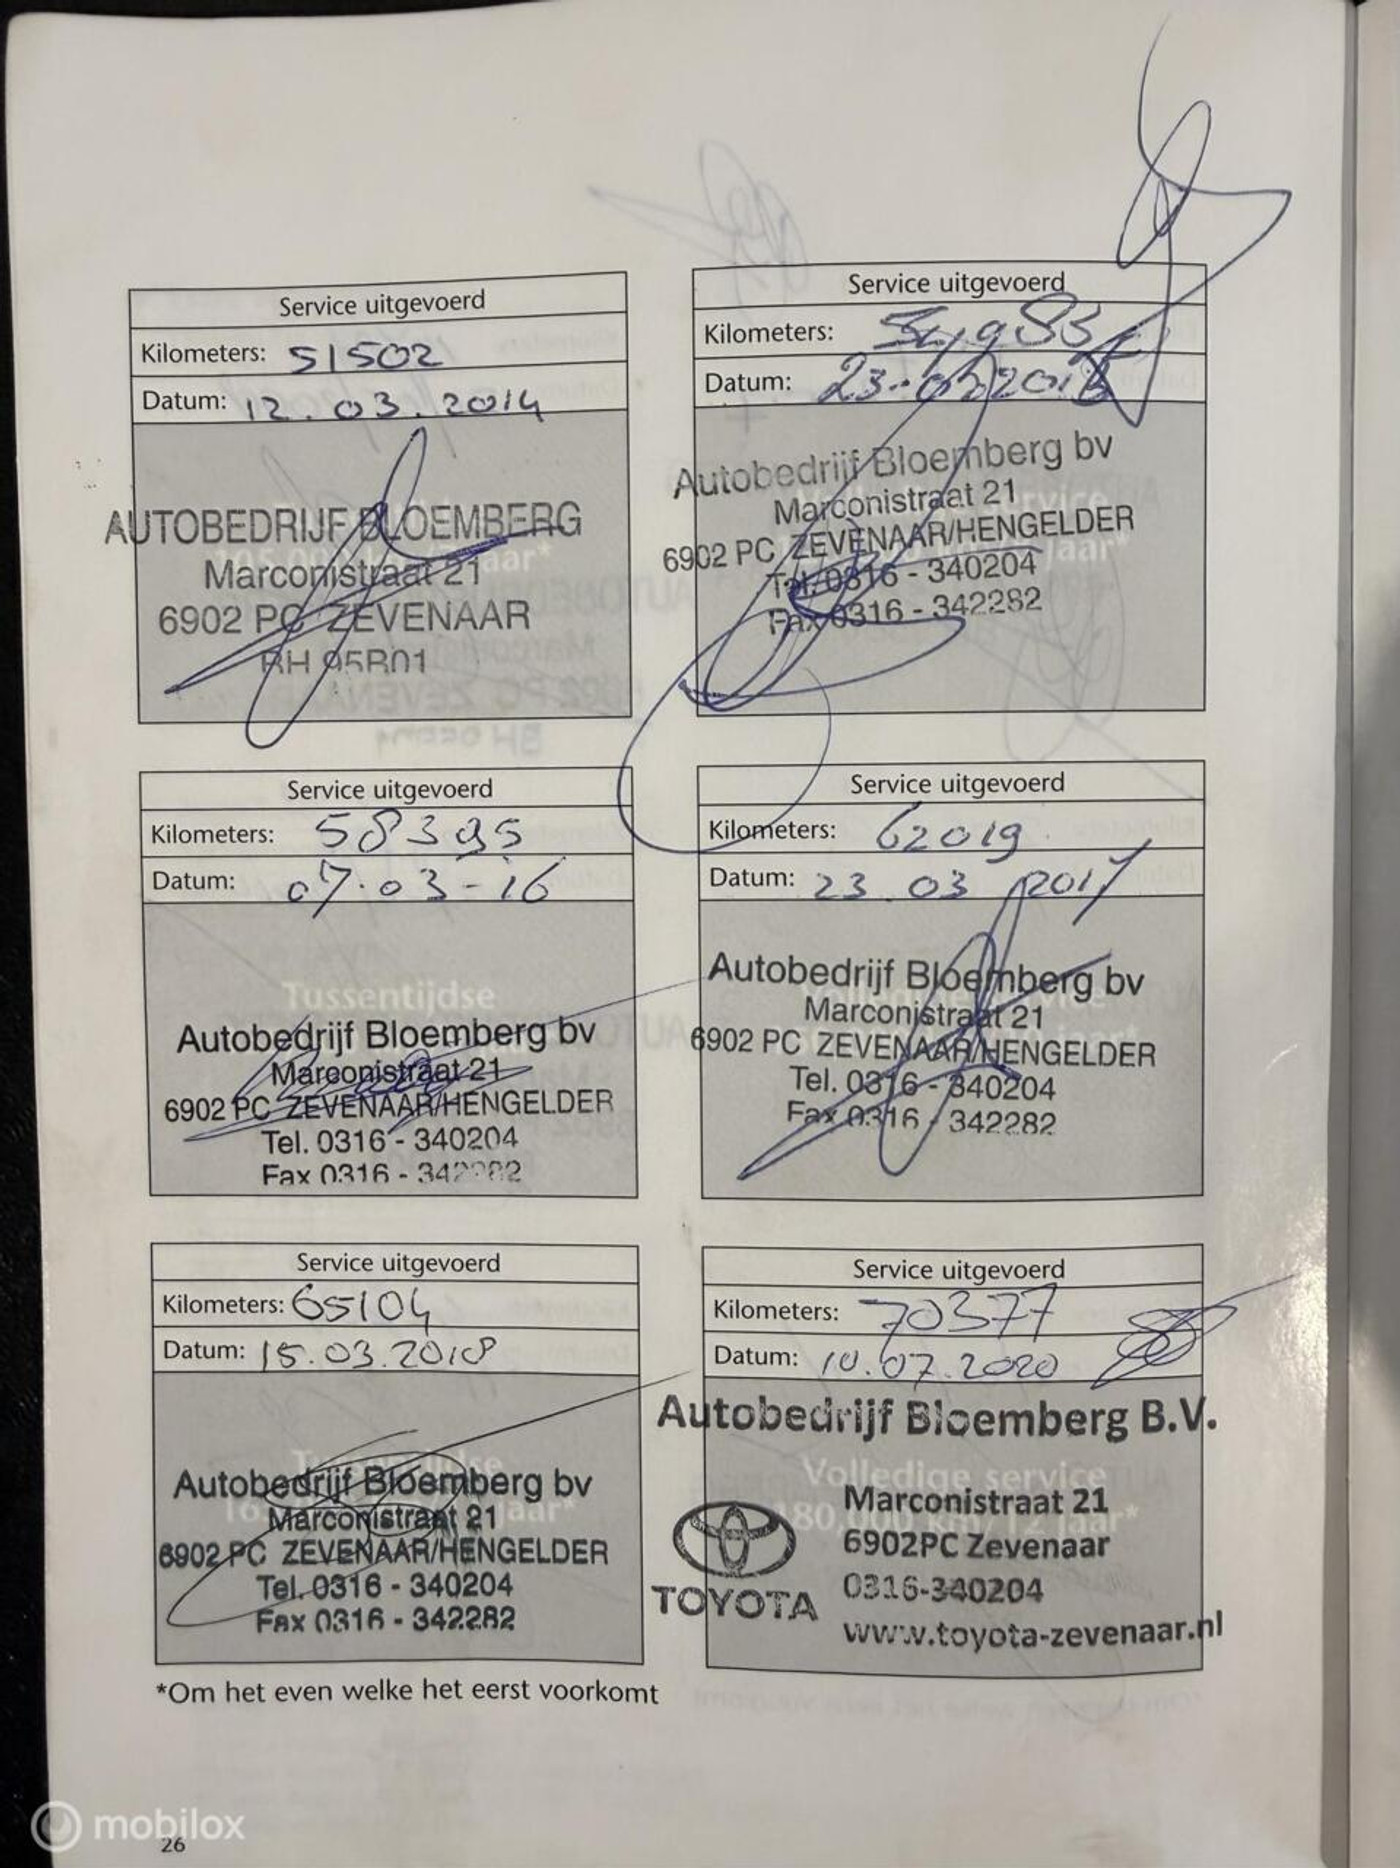 Service uitgevoerd
Kilometers: 51502
Datum: 12.03.2014
AUTOBEDRIJF BLOEMBERG
Marconistraat 21
6902 PC ZEVENAAR
BH 95R01
Service uitgevoerd
Kilometers:
Datum:
Autobedrijf Bloemberg bv
Marconistraat 21
6902 PC ZEVENAAR/HENGELDER
Tel. 0316 - 340204
Fax 0316 - 342282
Service uitgevoerd
Kilometers: 58395
Datum: 07.03-16
Tussentijdse
Autobedrijf Bloemberg bv
Marconistraat 21
6902 PC ZEVENAAR/HENGELDER
Tel. 0316 - 340204
Fax 0316 - 342282
Service uitgevoerd
Kilometers: 62019
Datum: 23.03 2017
Autobedrijf Bloemberg bv
Marconistraat 21
6902 PC ZEVENAAR/HENGELDER
Tel. 0316 - 340204
Fax 0316 - 342282
Service uitgevoerd
Kilometers: 65104
Datum: 15.03.2018
Autobedrijf Bloemberg bv
Marconistraat 21
6902 PC ZEVENAAR/HENGELDER
Tel. 0316 - 340204
Fax 0316 - 342282
Service uitgevoerd
Kilometers: 70377
Datum: 10.07.2020
Autobedrijf Bloemberg B.V.
Volledige service
Marconistraat 21
180,000 km/12 jaar*
6902PC Zevenaar
0316-340204
TOYOTA
www.toyota-zevenaar.nl
*Om het even welke het eerst voorkomt
mobilox
26